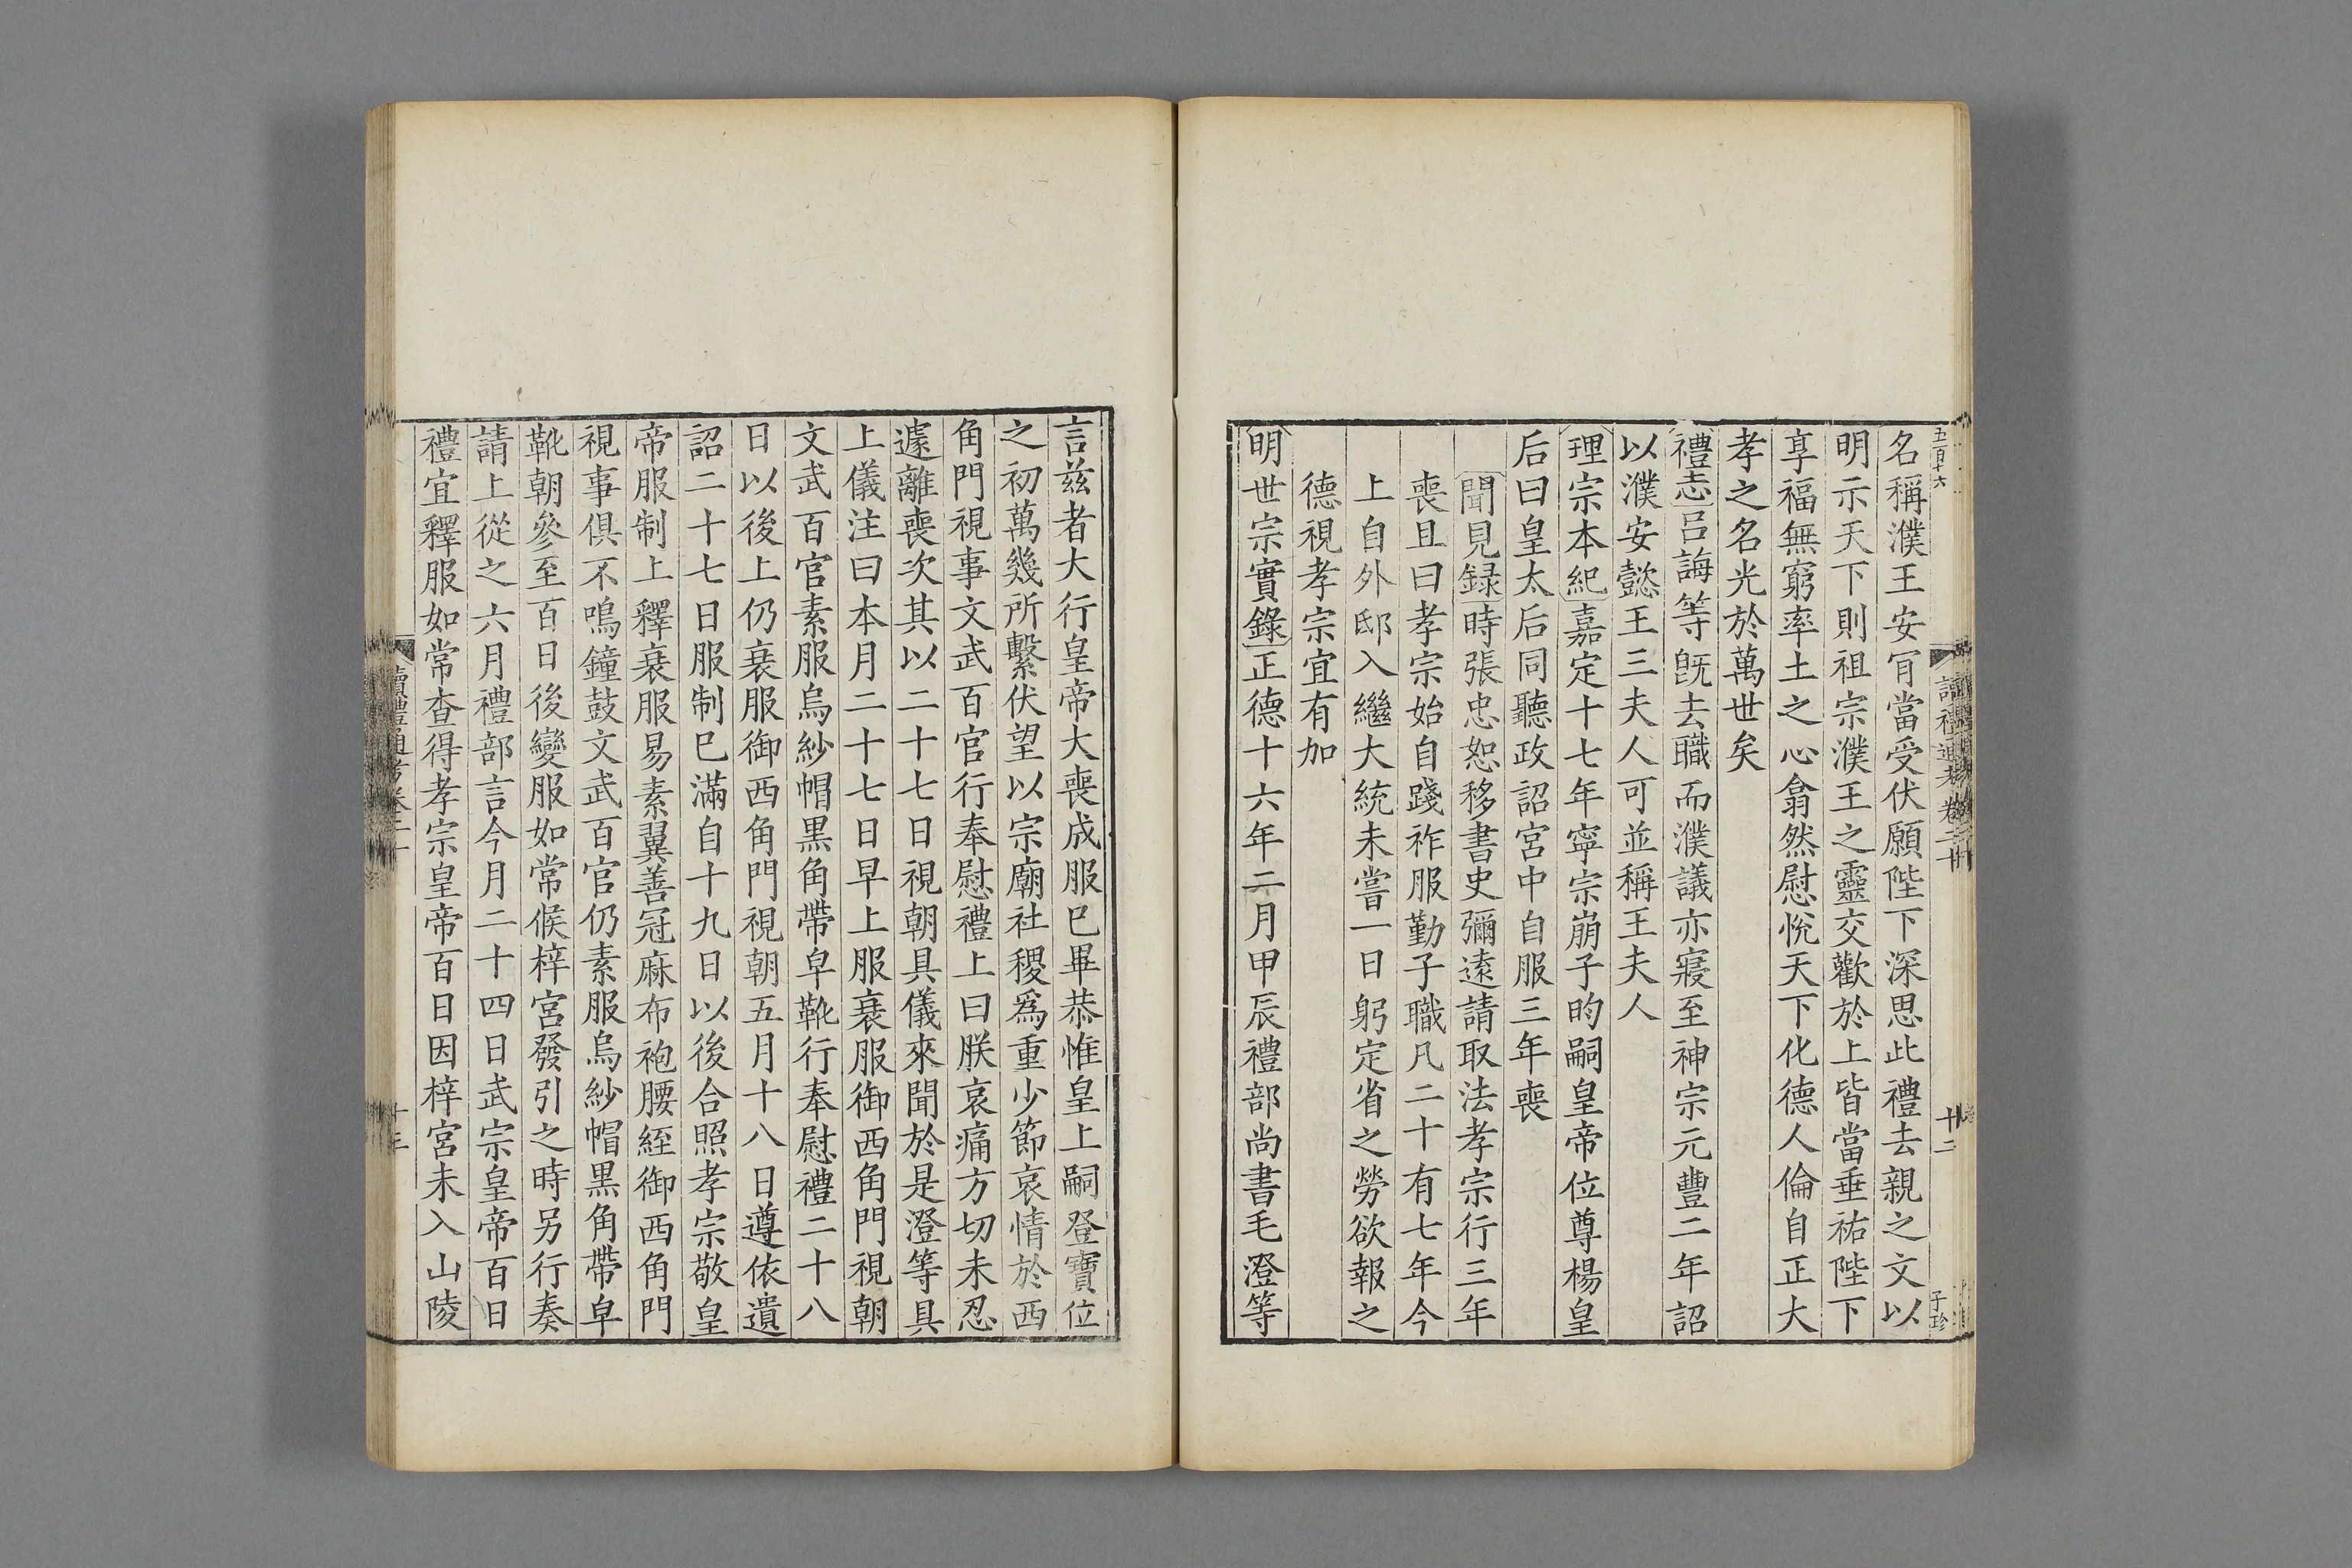 五百十六
讀禮通考卷二十
十二
子珍
名稱濮王安㝉當受伏願陛下深思此禮去親之文以
明示天下則祖宗濮王之靈交歡於上皆當垂祐陛下
享福無窮率土之心翕然慰悅天下化德人倫自正大
孝之名光於萬世矣
禮志呂誨等旣去職而濮議亦寢至神宗元豐二年詔
以濮安懿王三夫人可並稱王夫人
理宗本紀嘉定十七年寧宗崩子昀嗣皇帝位尊楊皇
后曰皇太后同聽政詔宮中自服三年喪
聞見録時張忠恕移書史彌遠請取法孝宗行三年
喪且曰孝宗始自踐祚服勤子職凡二十有七年今
上自外邸入繼大統未嘗一日躬定省之勞欲報之
德視孝宗宜有加
明世宗實錄正德十六年二月甲辰禮部尚書毛澄等
言兹者大行皇帝大喪成服巳畢恭惟皇上嗣登寶位
之初萬幾所繫伏望以宗廟社稷爲重少節哀情於西
角門視事文武百官行奉慰禮上曰朕哀痛方切未忍
遽離喪次其以二十七日視朝具儀來聞於是澄等具
上儀注曰本月二十七日早上服衰服御西角門視朝
文武百官素服烏紗帽黑角帶皁靴行奉慰禮二十八
日以後上仍衰服御西角門視朝五月十八日遵依遺
詔二十七日服制巳滿自十九日以後合照孝宗敬皇
帝服制上釋衰服易素翼善冠麻布袍腰絰御西角門
視事俱不鳴鐘鼓文武百官仍素服烏紗帽黑角帶皁
靴朝參至百日後變服如常候梓宮發引之時另行奏
請上從之六月禮部言今月二十四日武宗皇帝百日
禮宜釋服如常查得孝宗皇帝百日因梓宮未入山陵
讀禮通考卷二十
十三